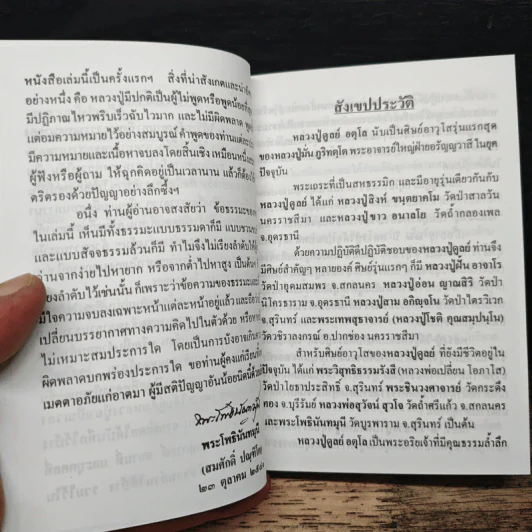 หนังสือเล่มนี้เป็นครั้งแรกฯ สิ่งที่น่าสังเกตและน่า
อย่างหนึ่ง คือ หลวงปู่มีปกติเป็นผู้ไม่พูดหรือพูดน้อยที่
มีปฏิภาณไหวพริบเร็วฉับไวมาก และไม่มีผิดพลาด
แต่อมความหมายไว้อย่างสมบูรณ์ คำพูดของท่านแต่ละ
มีความหมายและเนื้อหาจบลงโดยสิ้นเชิง เหมือนหนึ่ง
ผู้ฟังหรือผู้ถาม ให้ฉุกคิดอยู่เป็นเวลานาน แล้วก็ต้อง
ตริตรองด้วยปัญญาอย่างลึกซึ้งฯ
อนึ่ง ท่านผู้อ่านอาจสงสัยว่า ข้อธรรมะของ
ในเล่มนี้ เห็นมีทั้งธรรมะแบบธรรมดาก็มี แบบ
และแบบสัจจธรรมล้วนก็มี ทำไมจึงไม่เรียงลำดับให้
อ่านจากง่ายไปหายาก หรือจากต่ำไปหาสูง เป็นต้น
เรียงลำดับไว้เช่นนั้น ก็เพราะว่าข้อความของธรรมะ
มีใจความจบลงเฉพาะหน้าแต่ละหน้าอยู่แล้ว และ
เปลี่ยนบรรยากาศทางความคิดไปในตัวด้วย หรือหาก
ไม่เหมาะสมประการใด โดยเป็นการบังอาจเกิน
ผิดพลาดบกพร่องประการใด ขอท่านผู้คงแก่เรียน
เมตตาอภัยแก่อาตมา ผู้มีสติปัญญาอันน้อยนิดนี้ด้วย
พระโพธินันทมุนี
(สมศักดิ์ ปณฺฑิโต)
๒๓ ตุลาคม
สังเขปประวัติ
หลวงปู่ดูลย์ อตุโล นับเป็นศิษย์อาวุโสรุ่นแรกสุด
ของหลวงปู่มั่น ภูริทตฺโต พระอาจารย์ใหญ่ฝ่ายอรัญญวาสี ในยุค
ปัจจุบัน
พระเถระที่เป็นสหธรรมิก และมีอายุรุ่นเดียวกันกับ
หลวงปู่ดูลย์ ได้แก่ หลวงปู่สิงห์ ขนฺตยาคโม วัดป่าสาลวัน
นครราชสีมา และหลวงปู่ขาว อนาลโย วัดถ้ำกลองเพล
จ.อุดรธานี
ด้วยความปฏิบัติดีปฏิบัติชอบของหลวงปู่ดูลย์ ท่านจึง
มีศิษย์สำคัญๆ หลายองค์ ศิษย์รุ่นแรกๆ ก็มี หลวงปู่ฝั้น อาจาโร
วัดป่าอุดมสมพร จ.สกลนคร หลวงปู่อ่อน ญาณสิริ วัดป่า
นิโครธาราม จ.อุดรธานี หลวงปู่สาม อกิญฺจโน วัดป่าไตรวิเวก
จ.สุรินทร์ และพระเทพสุทธาจารย์ (หลวงปู่โชติ คุณสมฺปนฺโน)
วัดวชิราลงกรณ์ อ.ปากช่อง นครราชสีมา
สำหรับศิษย์อาวุโสของหลวงปู่ดูลย์ ที่ยังมีชีวิตอยู่ใน
ปัจจุบัน ได้แก่ พระวิสุทธิธรรมรังสี (หลวงพ่อเปลี่ยน โอภาโส)
วัดป่าโยธาประสิทธิ์ จ.สุรินทร์ พระชินวงศาจารย์ วัดกระดึง
ทอง จ.บุรีรัมย์ หลวงพ่อสุวัจน์ สุวโจ วัดถ้ำศรีแก้ว จ.สกลนคร
และพระโพธินันทมุนี วัดบูรพาราม จ.สุรินทร์ เป็นต้น
หลวงปู่ดูลย์ อตุโล เป็นพระอริยเจ้าที่มีคุณธรรมล้ำลึก